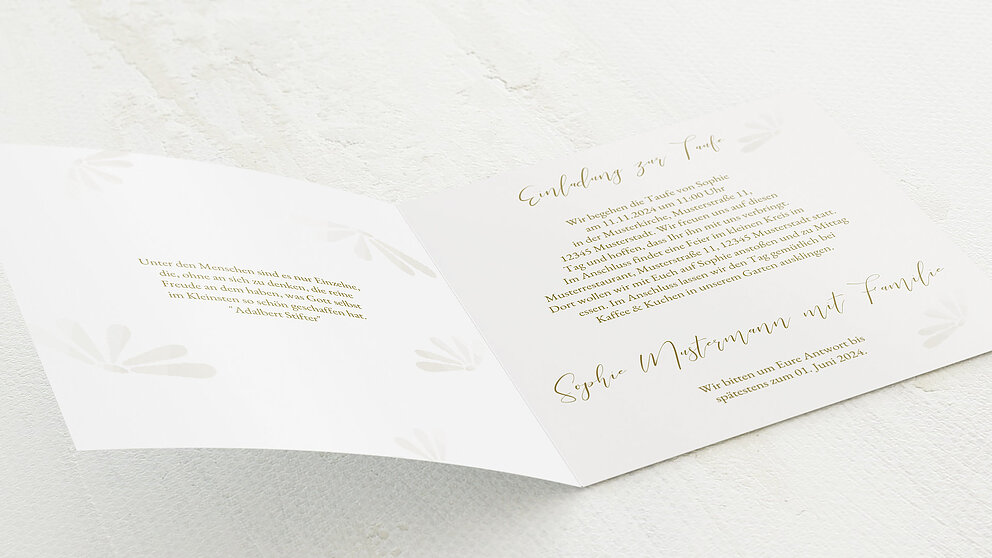 Unter den Menschen sind es nur Einzelne,
die, ohne an sich zu denken, die reine
Freude an dem haben, was Gott selbst
im Kleinsten so schön geschaffen hat.
"Adalbert Stifter"
Einladung zur Taufe
Wir begehen die Taufe von Sophie
am 11.11.2024 um 11.00 Uhr
in der Musterkirche, Musterstraße 11,
12345 Musterstadt. Wir freuen uns auf diesen
Tag und hoffen, dass Ihr ihn mit uns verbringt.
Im Anschluss findet eine Feier im kleinen Kreis im
Musterrestaurant, Musterstraße 11, 12345 Musterstadt statt.
Dort wollen wir mit Euch auf Sophie anstoßen und zu Mittag
essen. Im Anschluss lassen wir den Tag gemütlich bei
Kaffee & Kuchen in unserem Garten ausklingen.
Sophie Mustermann mit Familie
Wir bitten um Eure Antwort bis
spätestens zum 01. Juni 2024.